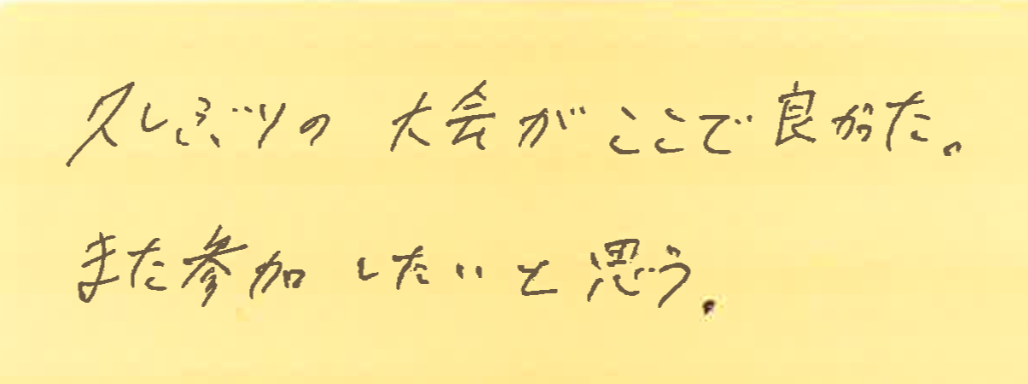 久しぶりの大会がここで良かった。
また参加したいと思う.